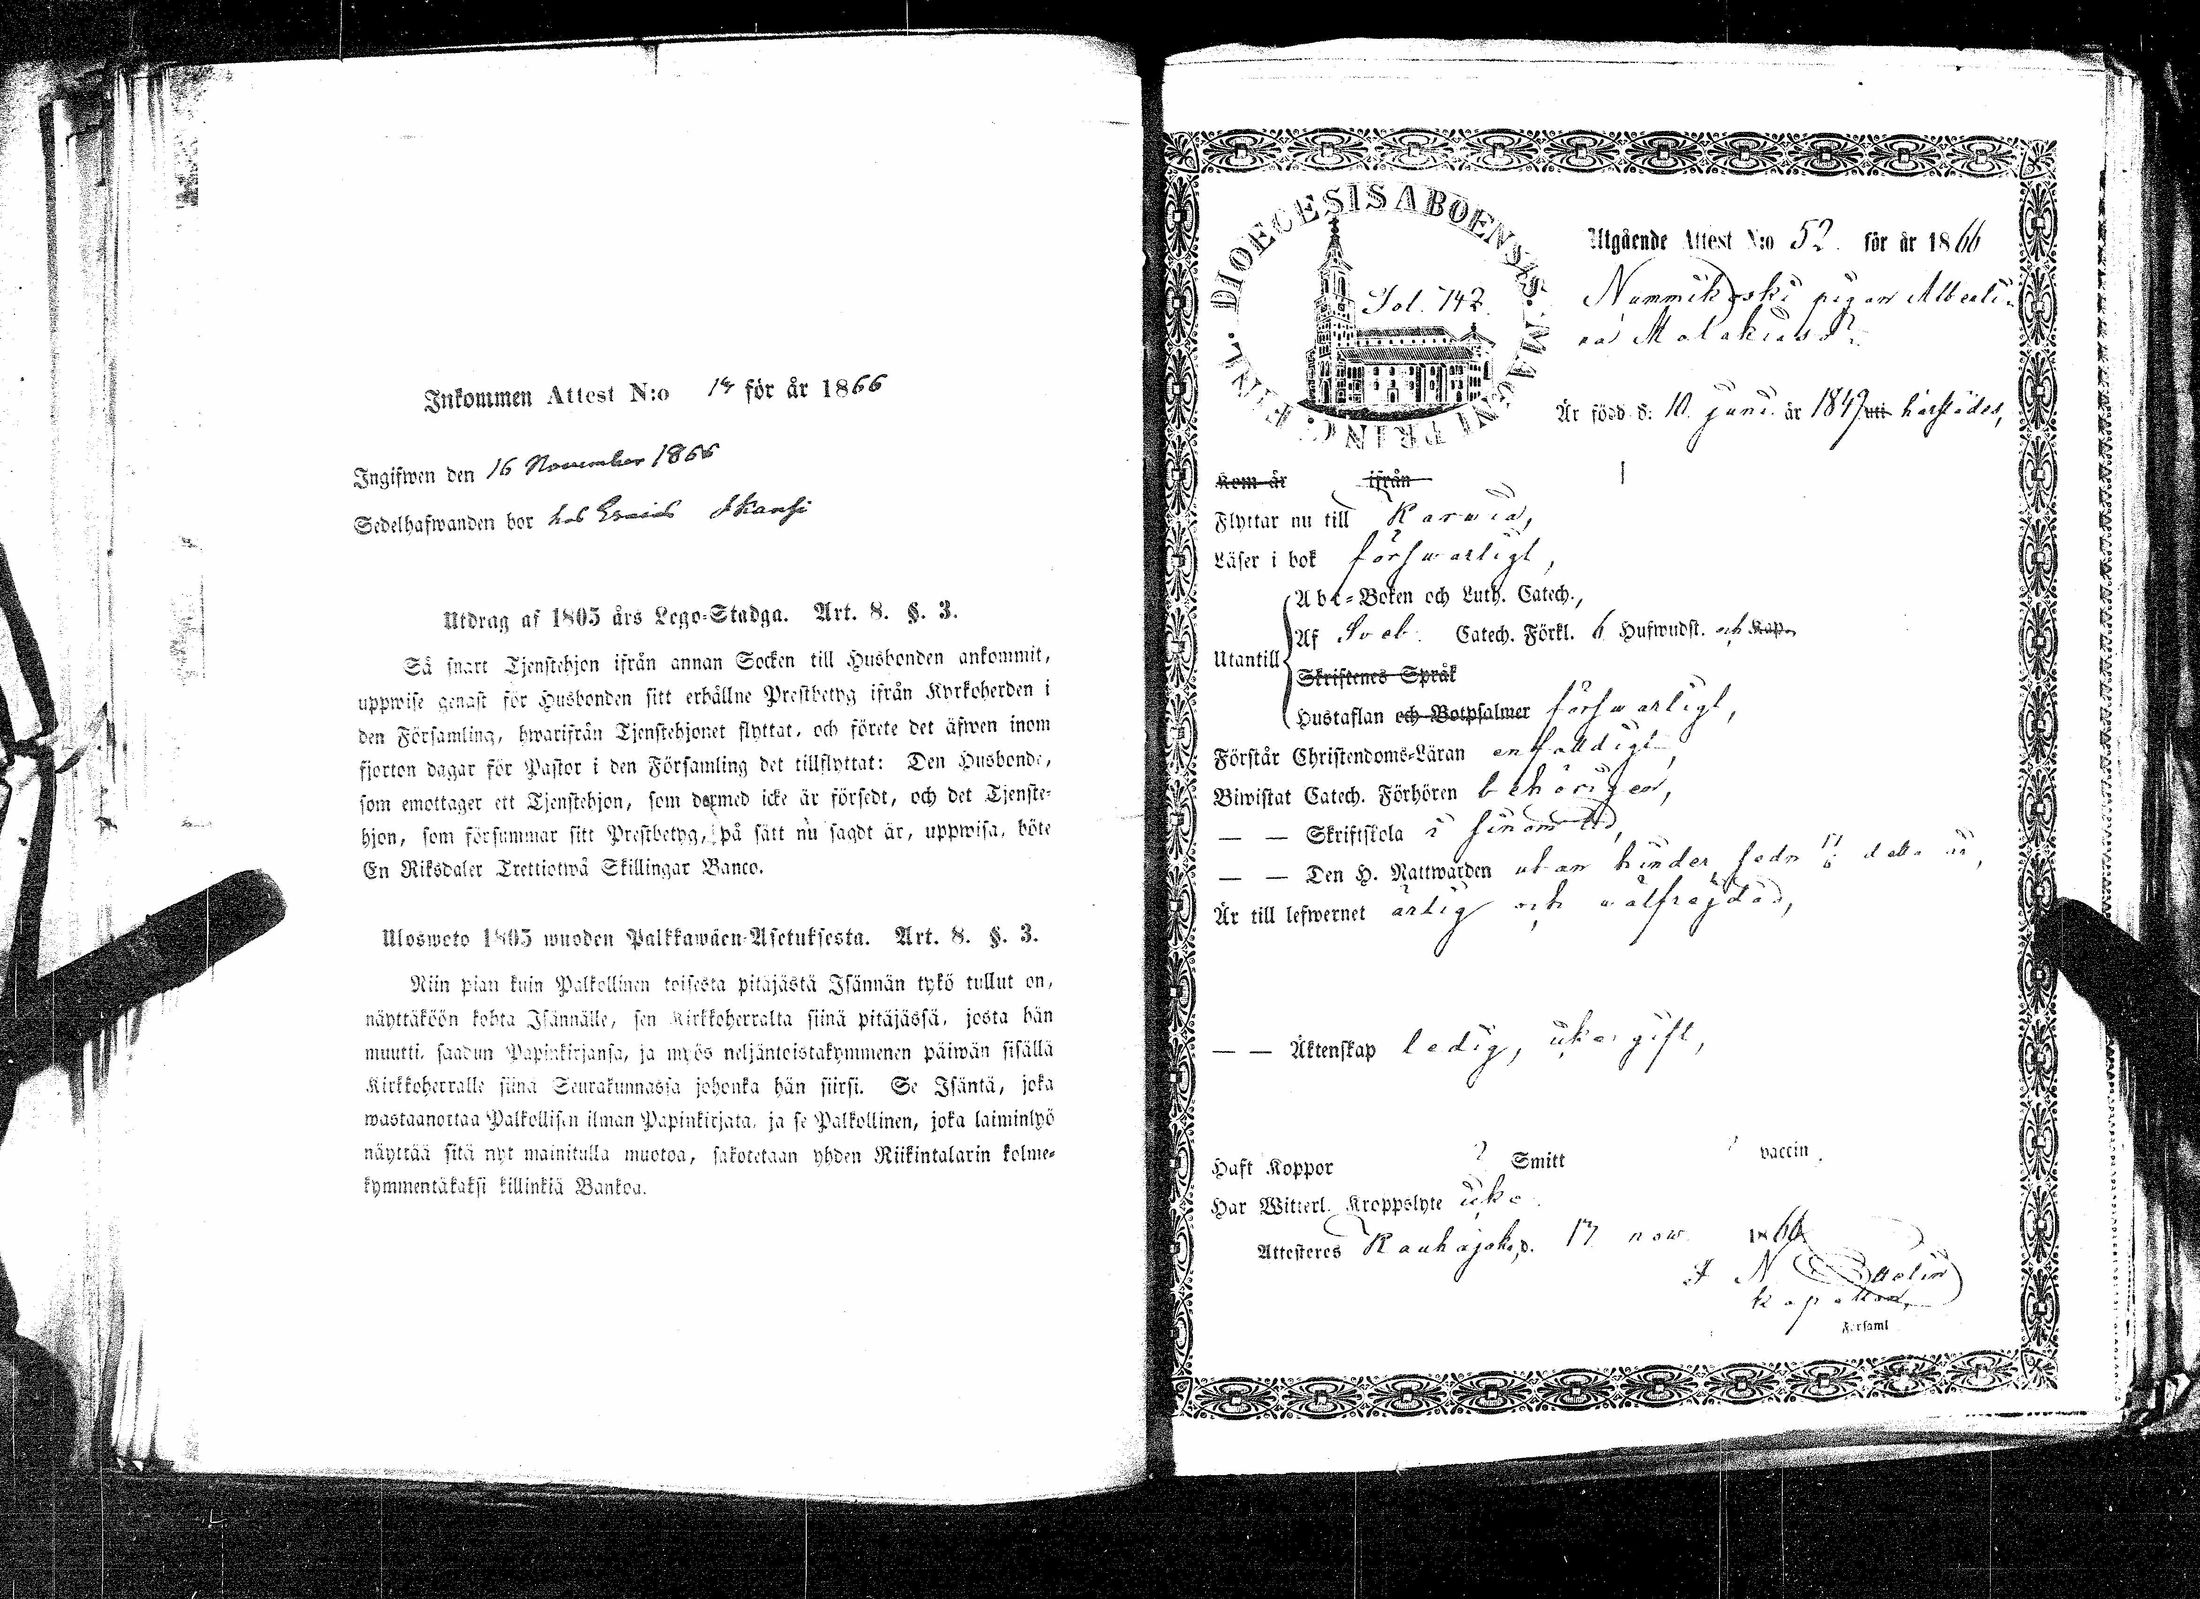 Inkommen Attest N:o 14 för år 1866
Ingifwen den 16 November 1866
Sedelhafwanden bor hos
Utdrag af 1805 års Lego-Stadga. Art. 8. §. 3.
Så snart Tjenstehjon ifrån annan Socken till Husbonden ankommit,
uppwise genast för Husbonden sitt erhållne Prestbetyg ifrån Kyrkoherden i
den Församling, hwarifrån Tjenstehjonet flyttat, och förete det äfwen inom
fjorton dagar för Pastor i den Församling det tillflyttat: Den Husbonde,
som emottager ett Tjenstehjon, som dermed icke är försedt, och det Tjenste-
hjon, som försummar sitt Prestbetyg, på sätt nu sagdt är, uppwisa, böte
En Riksdaler Trettiotwå Skillingar Banco.
Uloswoto 1805 wuoden Palkkawäen-Asetuksesta. Art. 8. §. 3.
Niin pian kuin Palkollinen toisesta pitäjästä Isännän tykö tullut on,
näyttäköön kohta Isännälle, sen Kirkkoherralta siinä pitäjässä, josta hän
muutti, saadun Papinkirjansa, ja myös neljäntoistakymmenen päiwän sisällä
Kirkkoherralle siinä Seurakunnassa johonka hän siirsi. Se Isäntä, joka
wastaanottaa Palkollisen ilman Papinkirjata, ja se Palkollinen, joka laiminlyö
näyttää sitä nyt mainitulla muotoa, sakotetaan yhden Riikintalarin kolme-
kymmentäkaksi killinkiä Bankoa.
DIOECESIS ABOENSIS. MAGNI PRINC. FINL.
Fol. 742.
Utgående Attest N:o 52. för år 1866
Nummikoski pigan Alberti-
na
Är född d: 10. juni. år 1847 uti härstädes,
Kom år ifrån
Flyttar nu till Karvia,
Läser i bok försvarligt,
Utantill
Abc-Boken och Luth. Catech.,
Af Sveb. Catech. Förkl. 6 Hufwudst. och Kap.
Skriftenes Språk
Hustaflan och Botpsalmer försvarligt,
Förstår Christendoms-Läran enfaldigt,
Biwistat Catech. Förhören behörigen,
— — Skriftskola i sinom tid,
— — Den H. Nattwarden utan hinder, sedn 11/6 detta år,
Är till lefwernet ärlig och välfräjdad,
— — Äktenskap ledig, icke gift,
Haft Koppor ? Smitt ? vaccin.
Har Witterl. Kroppslyte icke.
Attesteres Kauhajoki, d. 17 nov. 1866
kapellan,
Församl